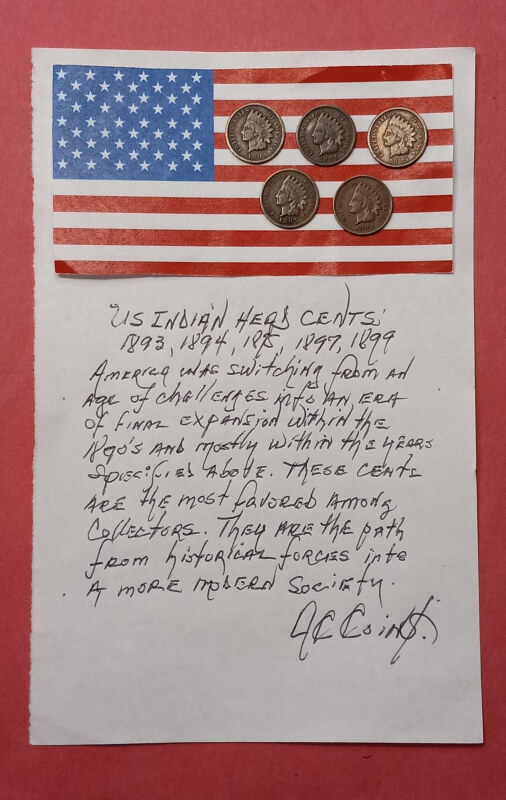 US INDIAN HEAD CENTS:
1893, 1894, 185, 1897, 1899
AMERICA WAS SWITCHING FROM AN
AGE OF CHALLENGES INTO AN ERA
OF FINAL EXPANSION WITHIN THE
1890'S AND MOSTLY WITHIN THE YEARS
SPECIFIED ABOVE. THESE CENTS
ARE THE MOST FAVORED AMONG
COLLECTORS. THEY ARE THE PATH
FROM HISTORICAL FORCES INTO
A MORE MODERN SOCIETY.
JC Coin$.